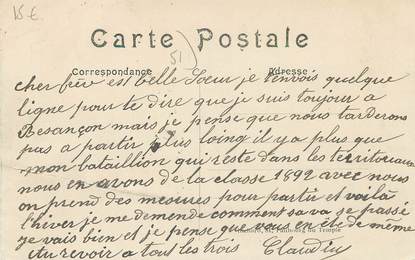 15 €
Carte Postale
51
Correspondance Adresse
cher frère est belle Soeur je tenvois quelque
ligne pour te dire que je suis toujour a
Besançon mais je pense que nous tarderons
pas a partir plus loing il y a plus que
mon bataillion qui reste dans les territoriaux
nous en avons de la classe 1892 avec nous
on prend des mesures pour partir et voilà
l'hiver je me demende comment sa va se passé
je vais bien et je pense que vous en ête de même
Au revoir a tout les trois Claudius
Faubourg du Temple